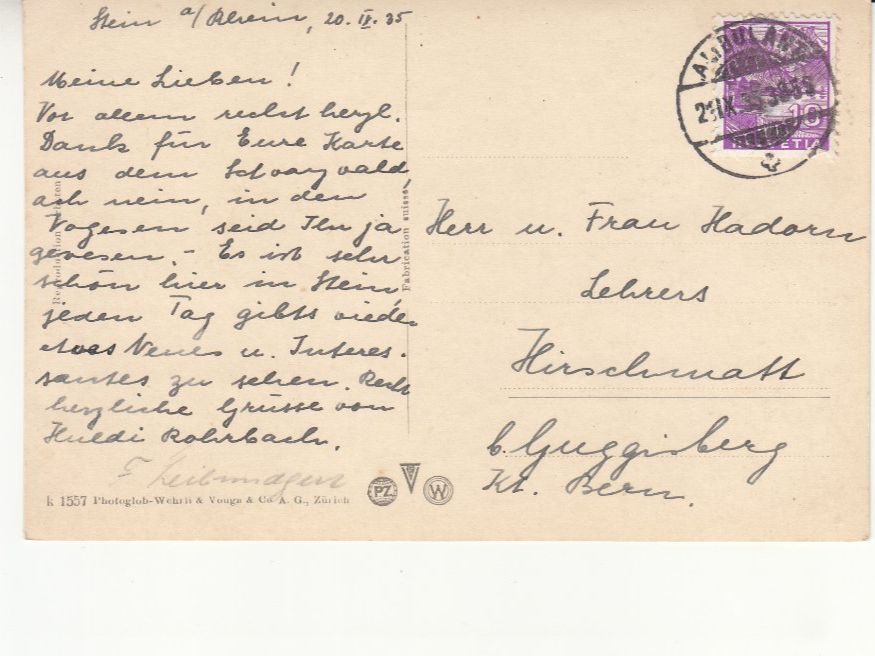 Stein a/Rhein, 20. IX. 35
Meine Lieben!
Vor allem recht herzl.
Dank für Eure Karte
aus dem Schwarzwald,
ach nein, in den
Vogesen seid Ihr ja
gewesen. - Es ist sehr
schön hier in Stein
jeden Tag gibts wieder
etwas Neues u. Interes-
santes zu sehen. Recht
herzliche Grüsse von
Huldi Rohrbach.
F
k 1557 Photoglob-Wehrli & Vouga & Co A. G., Zürich
PZ
W
Fabrication suisse
AMBULANT
HELVETIA
10
Herr u. Frau Hadorn
Lehrers
Hirschmatt
b. Guggisberg
Kt. Bern.